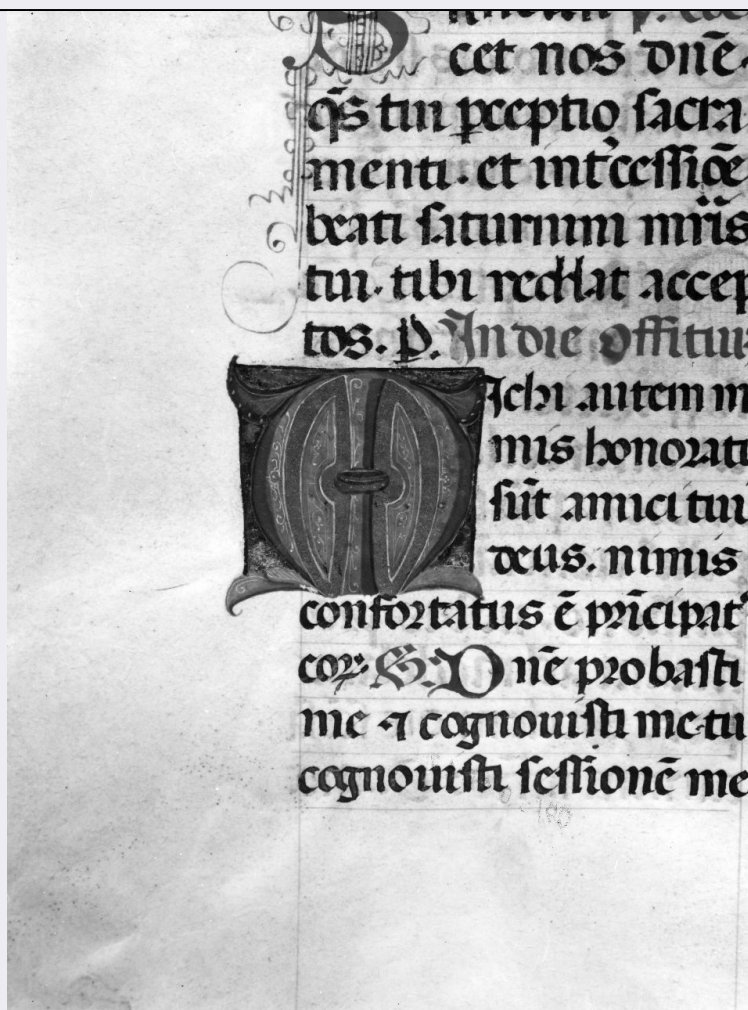 cet nos dñē
q̄s tui ꝑceptio sacra
menti. et int̓cessiōe
beati saturnini mr̄is
tui. tibi reddat accep
tos. P. In die offitiu
Michi autem ni
mis honorati
sūt amici tui
deus. nimis
confortatus ē prīcipat᾽
coꝝ. S. Dñē probasti
me ⁊ cognouisti me tu
cognouisti sessionē me